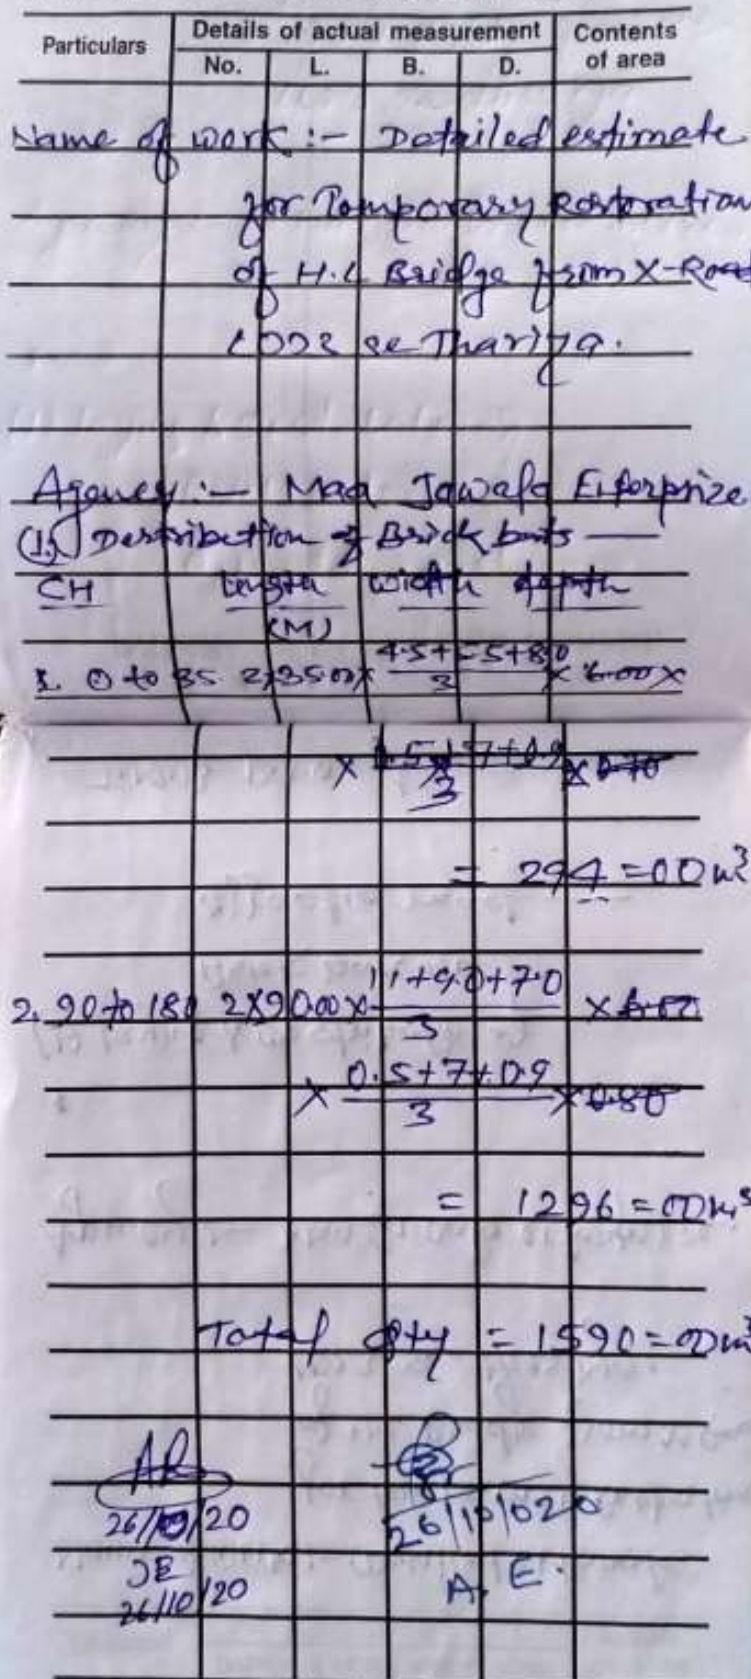 Particulars Details of actual measurement Contents of area
No. L. B. D.
Name of work :- Detailed estimate
for Temporary Restoration
of H.L Bridge from X-Road
se Thariya.
Agency :- Maa Jawala Enterprize
(1) Destribution of Brick bats —
CH Length width depth
(M)
1. 0 to 35 2x35.00x 4.5+5.5+8.0 / 3 x 6.00 x
x 0.5+.7+0.9 / 3 x 0.70
= 294=00 m³
2. 90 to 180 2x90.00x 11+9.0+7.0 / 3
x 0.5+7+0.9 / 3 x 0.80
= 1296=00 m³
Total qty = 1590=00 m³
26/10/20 26/10/020
JE A. E.
26/10/20